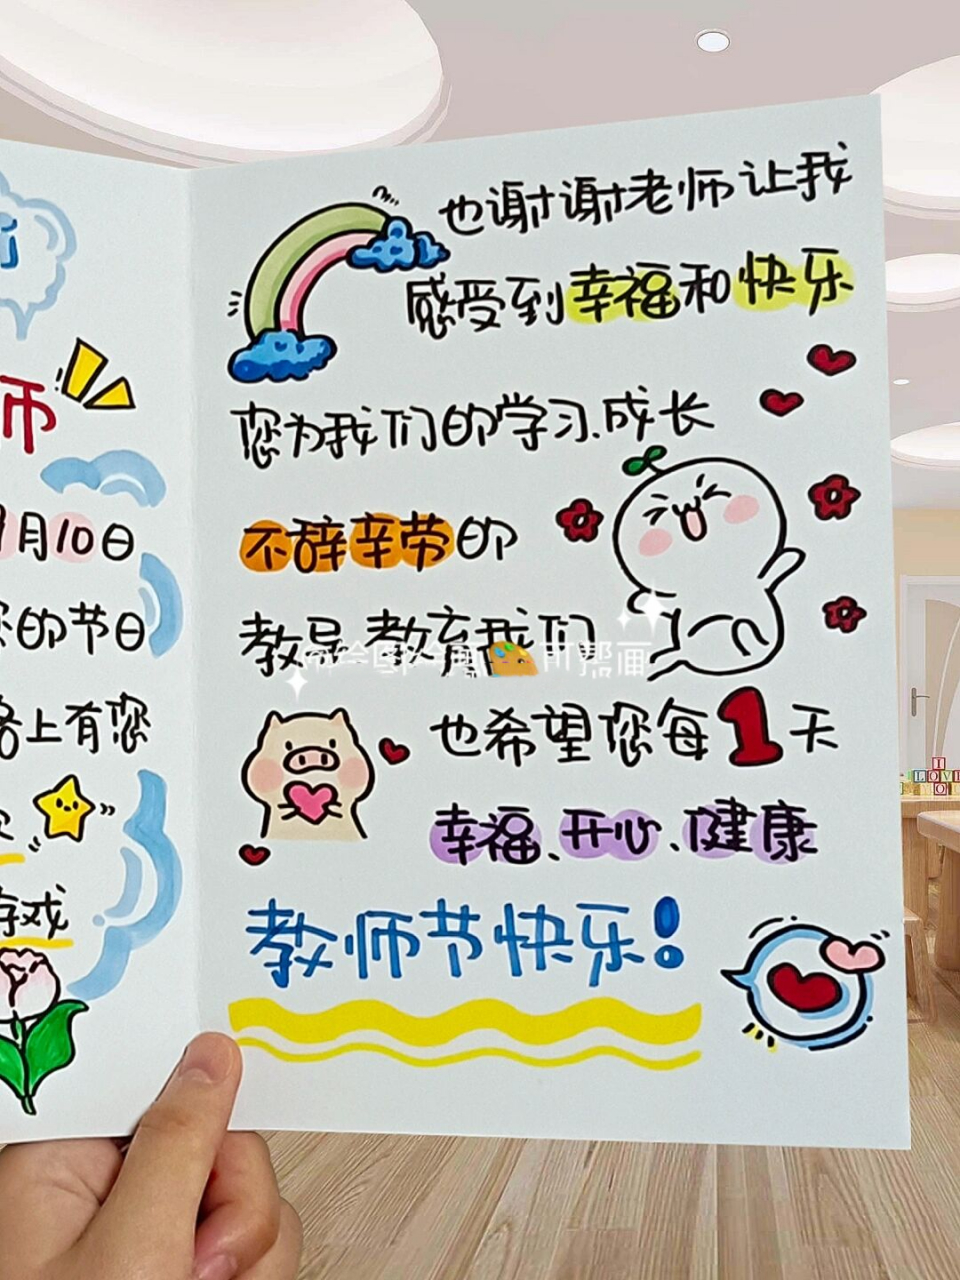 师
月10日
的节日
上有您
游戏
也谢谢老师让我
感受到幸福和快乐
您为我们的学习、成长
不辞辛劳的
教导、教育我们
也希望您每1天
幸福、开心、健康
教师节快乐!
可帮画
I
LOVE